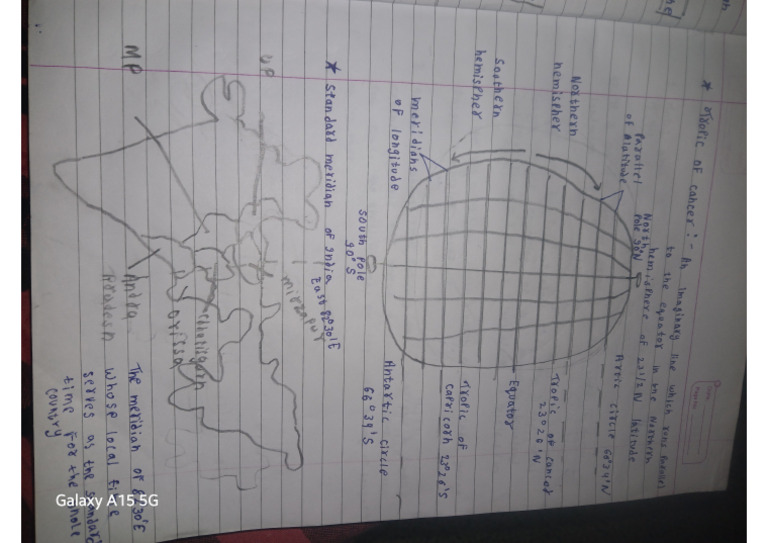 * Tropic of cancer :- An imaginary line which runs parallel
to the equator in the Northern
Northem isphere of 23 1/2 N latitude
Parallel
of Alatitude
Pole 90°N
Northern
hemispher
Southern
hemispher
meridians
of longitude
Artic circle 66°34'N
Tropic of cancer
23°26'N
Equator
Tropic of
capricorn 23°26'S
Antartic circle
66°34'S
South Pole
90°S
* Standard meridian of India
East 82°30'E
UP
MP
mirzapur
Chhatisgarh
Orissa
Andra
Pradesh
The meridian of 82°30'E
whose local time
serves as the standard
time for the whole
country
Galaxy A15 5G